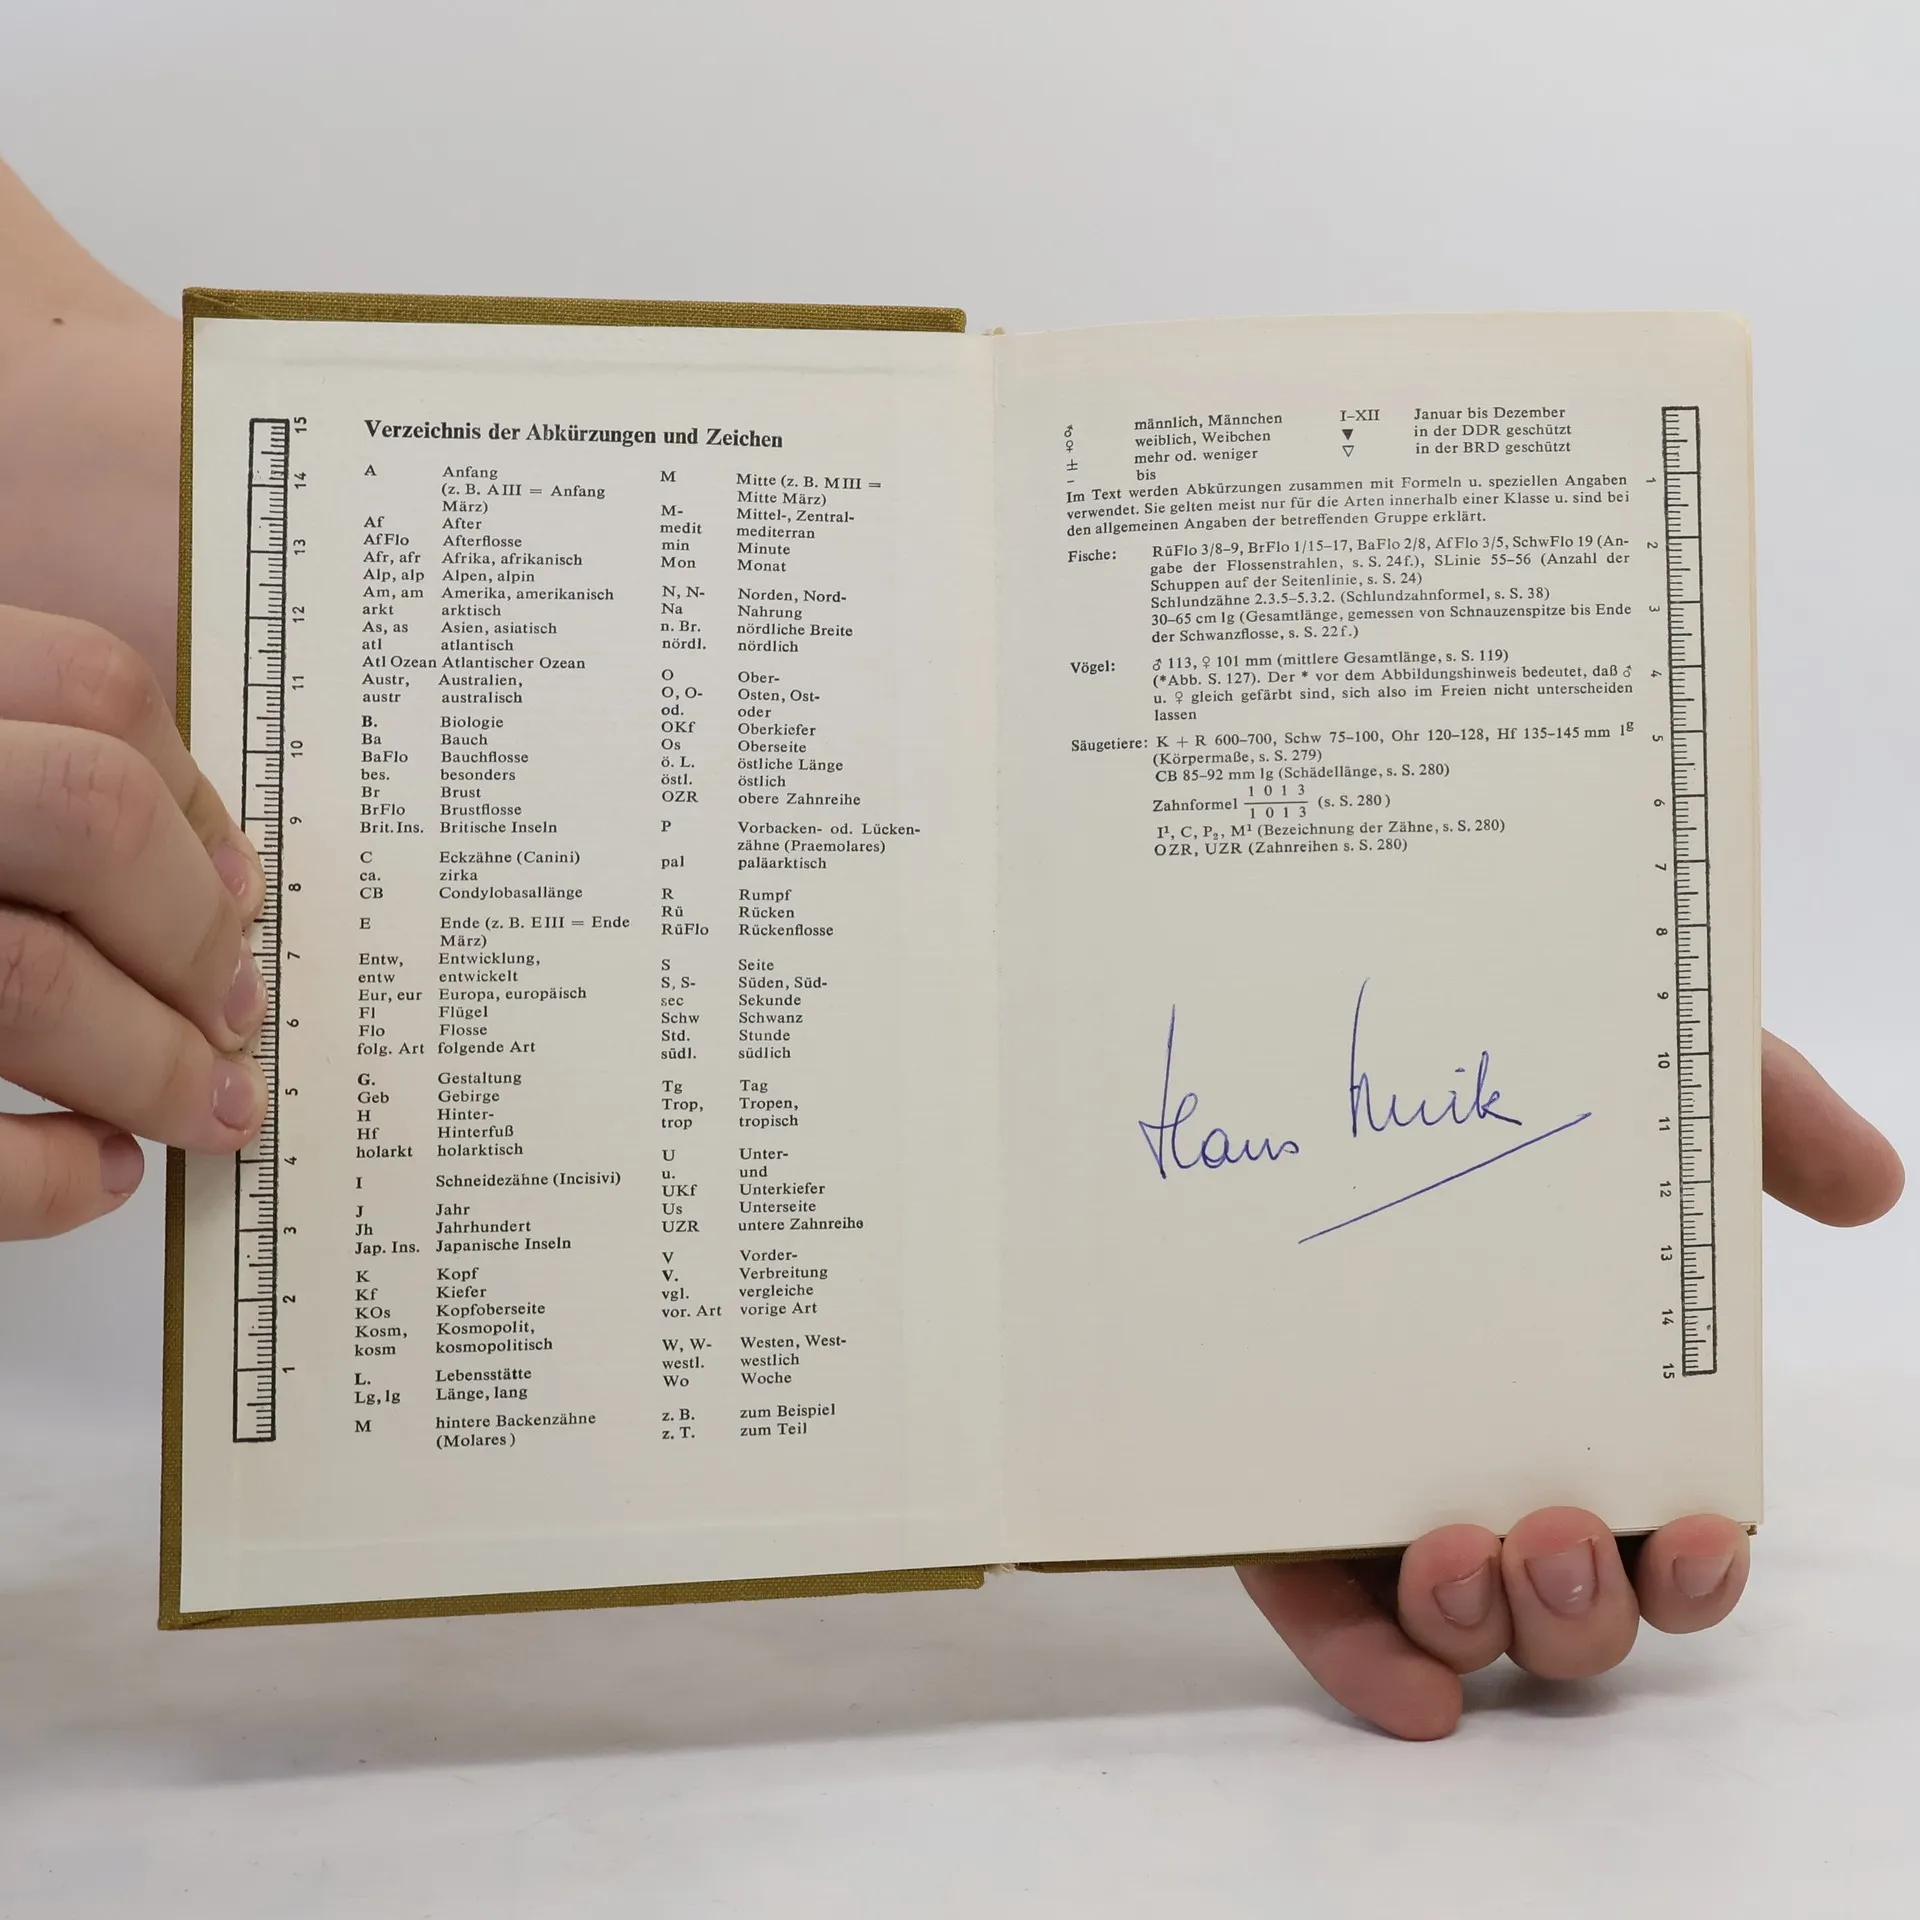 Verzeichnis der Abkürzungen und Zeichen
A Anfang
(z. B. A III = Anfang
März)
Af After
AfFlo Afterflosse
Afr, afr Afrika, afrikanisch
Alp, alp Alpen, alpin
Am, am Amerika, amerikanisch
arkt arktisch
As, as Asien, asiatisch
atl atlantisch
Atl Ozean Atlantischer Ozean
Austr, Australien,
austr australisch
B. Biologie
Ba Bauch
BaFlo Bauchflosse
bes. besonders
Br Brust
BrFlo Brustflosse
Brit. Ins. Britische Inseln
C Eckzähne (Canini)
ca. zirka
CB Condylobasallänge
E Ende (z. B. E III = Ende
März)
Entw, Entwicklung,
entw entwickelt
Eur, eur Europa, europäisch
Fl Flügel
Flo Flosse
folg. Art folgende Art
G. Gestaltung
Geb Gebirge
H Hinter-
Hf Hinterfuß
holarkt holarktisch
I Schneidezähne (Incisivi)
J Jahr
Jh Jahrhundert
Jap. Ins. Japanische Inseln
K Kopf
Kf Kiefer
KOs Kopfoberseite
Kosm, Kosmopolit,
kosm kosmopolitisch
L. Lebensstätte
Lg, lg Länge, lang
M hintere Backenzähne
(Molares)
M Mitte (z. B. M III =
Mitte März)
M- Mittel-, Zentral-
medit mediterran
min Minute
Mon Monat
N, N- Norden, Nord-
Na Nahrung
n. Br. nördliche Breite
nördl. nördlich
O Ober-
O, O- Osten, Ost-
od. oder
OKf Oberkiefer
Os Oberseite
ö. L. östliche Länge
östl. östlich
OZR obere Zahnreihe
P Vorbacken- od. Lücken-
zähne (Praemolares)
pal paläarktisch
R Rumpf
Rü Rücken
RüFlo Rückenflosse
S Seite
S, S- Süden, Süd-
sec Sekunde
Schw Schwanz
Std. Stunde
südl. südlich
Tg Tag
Trop, Tropen,
trop tropisch
U Unter-
u. und
UKf Unterkiefer
Us Unterseite
UZR untere Zahnreihe
V Vorder-
V. Verbreitung
vgl. vergleiche
vor. Art vorige Art
W, W- Westen, West-
westl. westlich
Wo Woche
z. B. zum Beispiel
z. T. zum Teil
15
14
13
12
11
10
9
8
7
6
5
4
3
2
1
♂ männlich, Männchen
♀ weiblich, Weibchen
± mehr od. weniger
– bis
I–XII Januar bis Dezember
▼ in der DDR geschützt
▽ in der BRD geschützt
Im Text werden Abkürzungen zusammen mit Formeln u. speziellen Angaben
verwendet. Sie gelten meist nur für die Arten innerhalb einer Klasse u. sind bei
den allgemeinen Angaben der betreffenden Gruppe erklärt.
Fische: RüFlo 3/8–9, BrFlo 1/15–17, BaFlo 2/8, AfFlo 3/5, SchwFlo 19 (An-
gabe der Flossenstrahlen, s. S. 24f.), SLinie 55–56 (Anzahl der
Schuppen auf der Seitenlinie, s. S. 24)
Schlundzähne 2.3.5–5.3.2. (Schlundzahnformel, s. S. 38)
30–65 cm lg (Gesamtlänge, gemessen von Schnauzenspitze bis Ende
der Schwanzflosse, s. S. 22f.)
Vögel: ♂ 113, ♀ 101 mm (mittlere Gesamtlänge, s. S. 119)
(*Abb. S. 127). Der * vor dem Abbildungshinweis bedeutet, daß ♂
u. ♀ gleich gefärbt sind, sich also im Freien nicht unterscheiden
lassen
Säugetiere: K + R 600–700, Schw 75–100, Ohr 120–128, Hf 135–145 mm lg
(Körpermaße, s. S. 279)
CB 85–92 mm lg (Schädellänge, s. S. 280)
Zahnformel 1 0 1 3 / 1 0 1 3 (s. S. 280)
I¹, C, P₂, M¹ (Bezeichnung der Zähne, s. S. 280)
OZR, UZR (Zahnreihen s. S. 280)
Hans
1
2
3
4
5
6
7
8
9
10
11
12
13
14
15